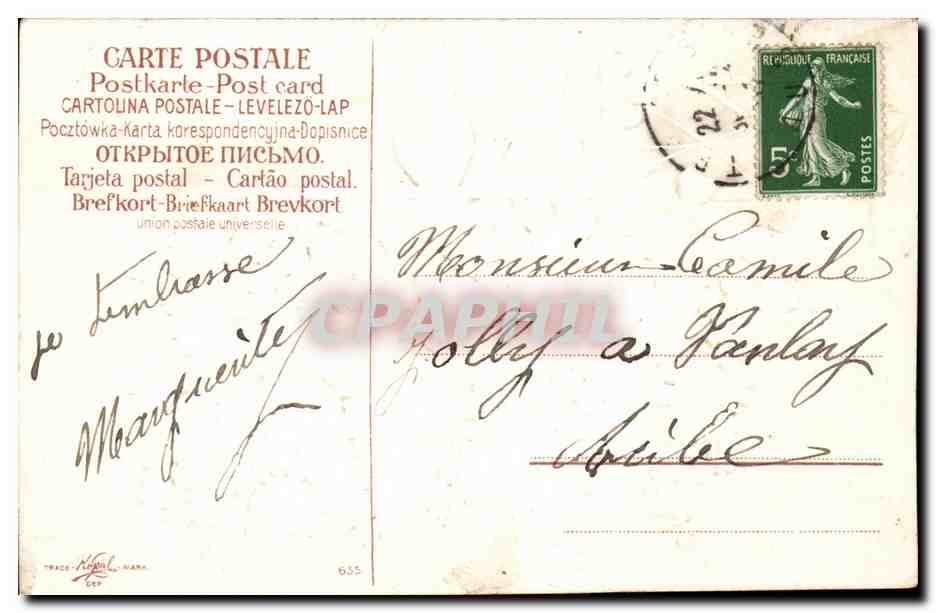 CARTE POSTALE
Postkarte-Post card
CARTOLINA POSTALE-LEVELEZÖ-LAP
Pocztówka-Karta korespondencyjna-Dopisnice
ОТКРЫТОЕ ПИСЬМО.
Tarjeta postal - Cartão postal.
Brefkort-Briefkaart Brevkort
union postale universelle
je t'embrasse
Marguerite
TRADE - MARK
DEP
655
22
REPUBLIQUE FRANÇAISE
5
POSTES
Monsieur Camile
Jolly a Vanlay
Aube
CPAPHIL